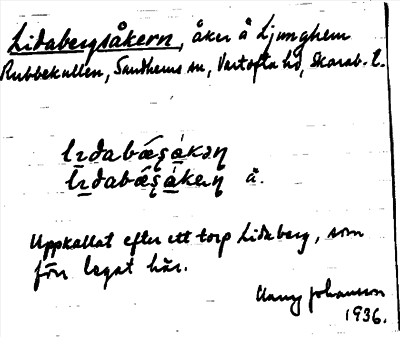 Lidabergsåkern, åker å Ljunghem
Rubbekullen, Sandhems sn, Vartofta hd, Skarab. l.
å.
Uppkallat efter ett torp Lidaberg, som
förr legat här.
Johansson
1936.